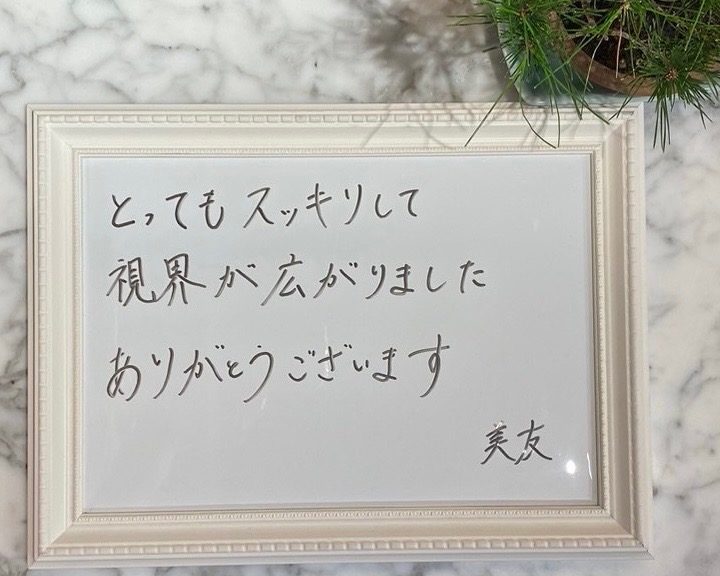 とってもスッキリして
視界が広がりました
ありがとうございます
美友